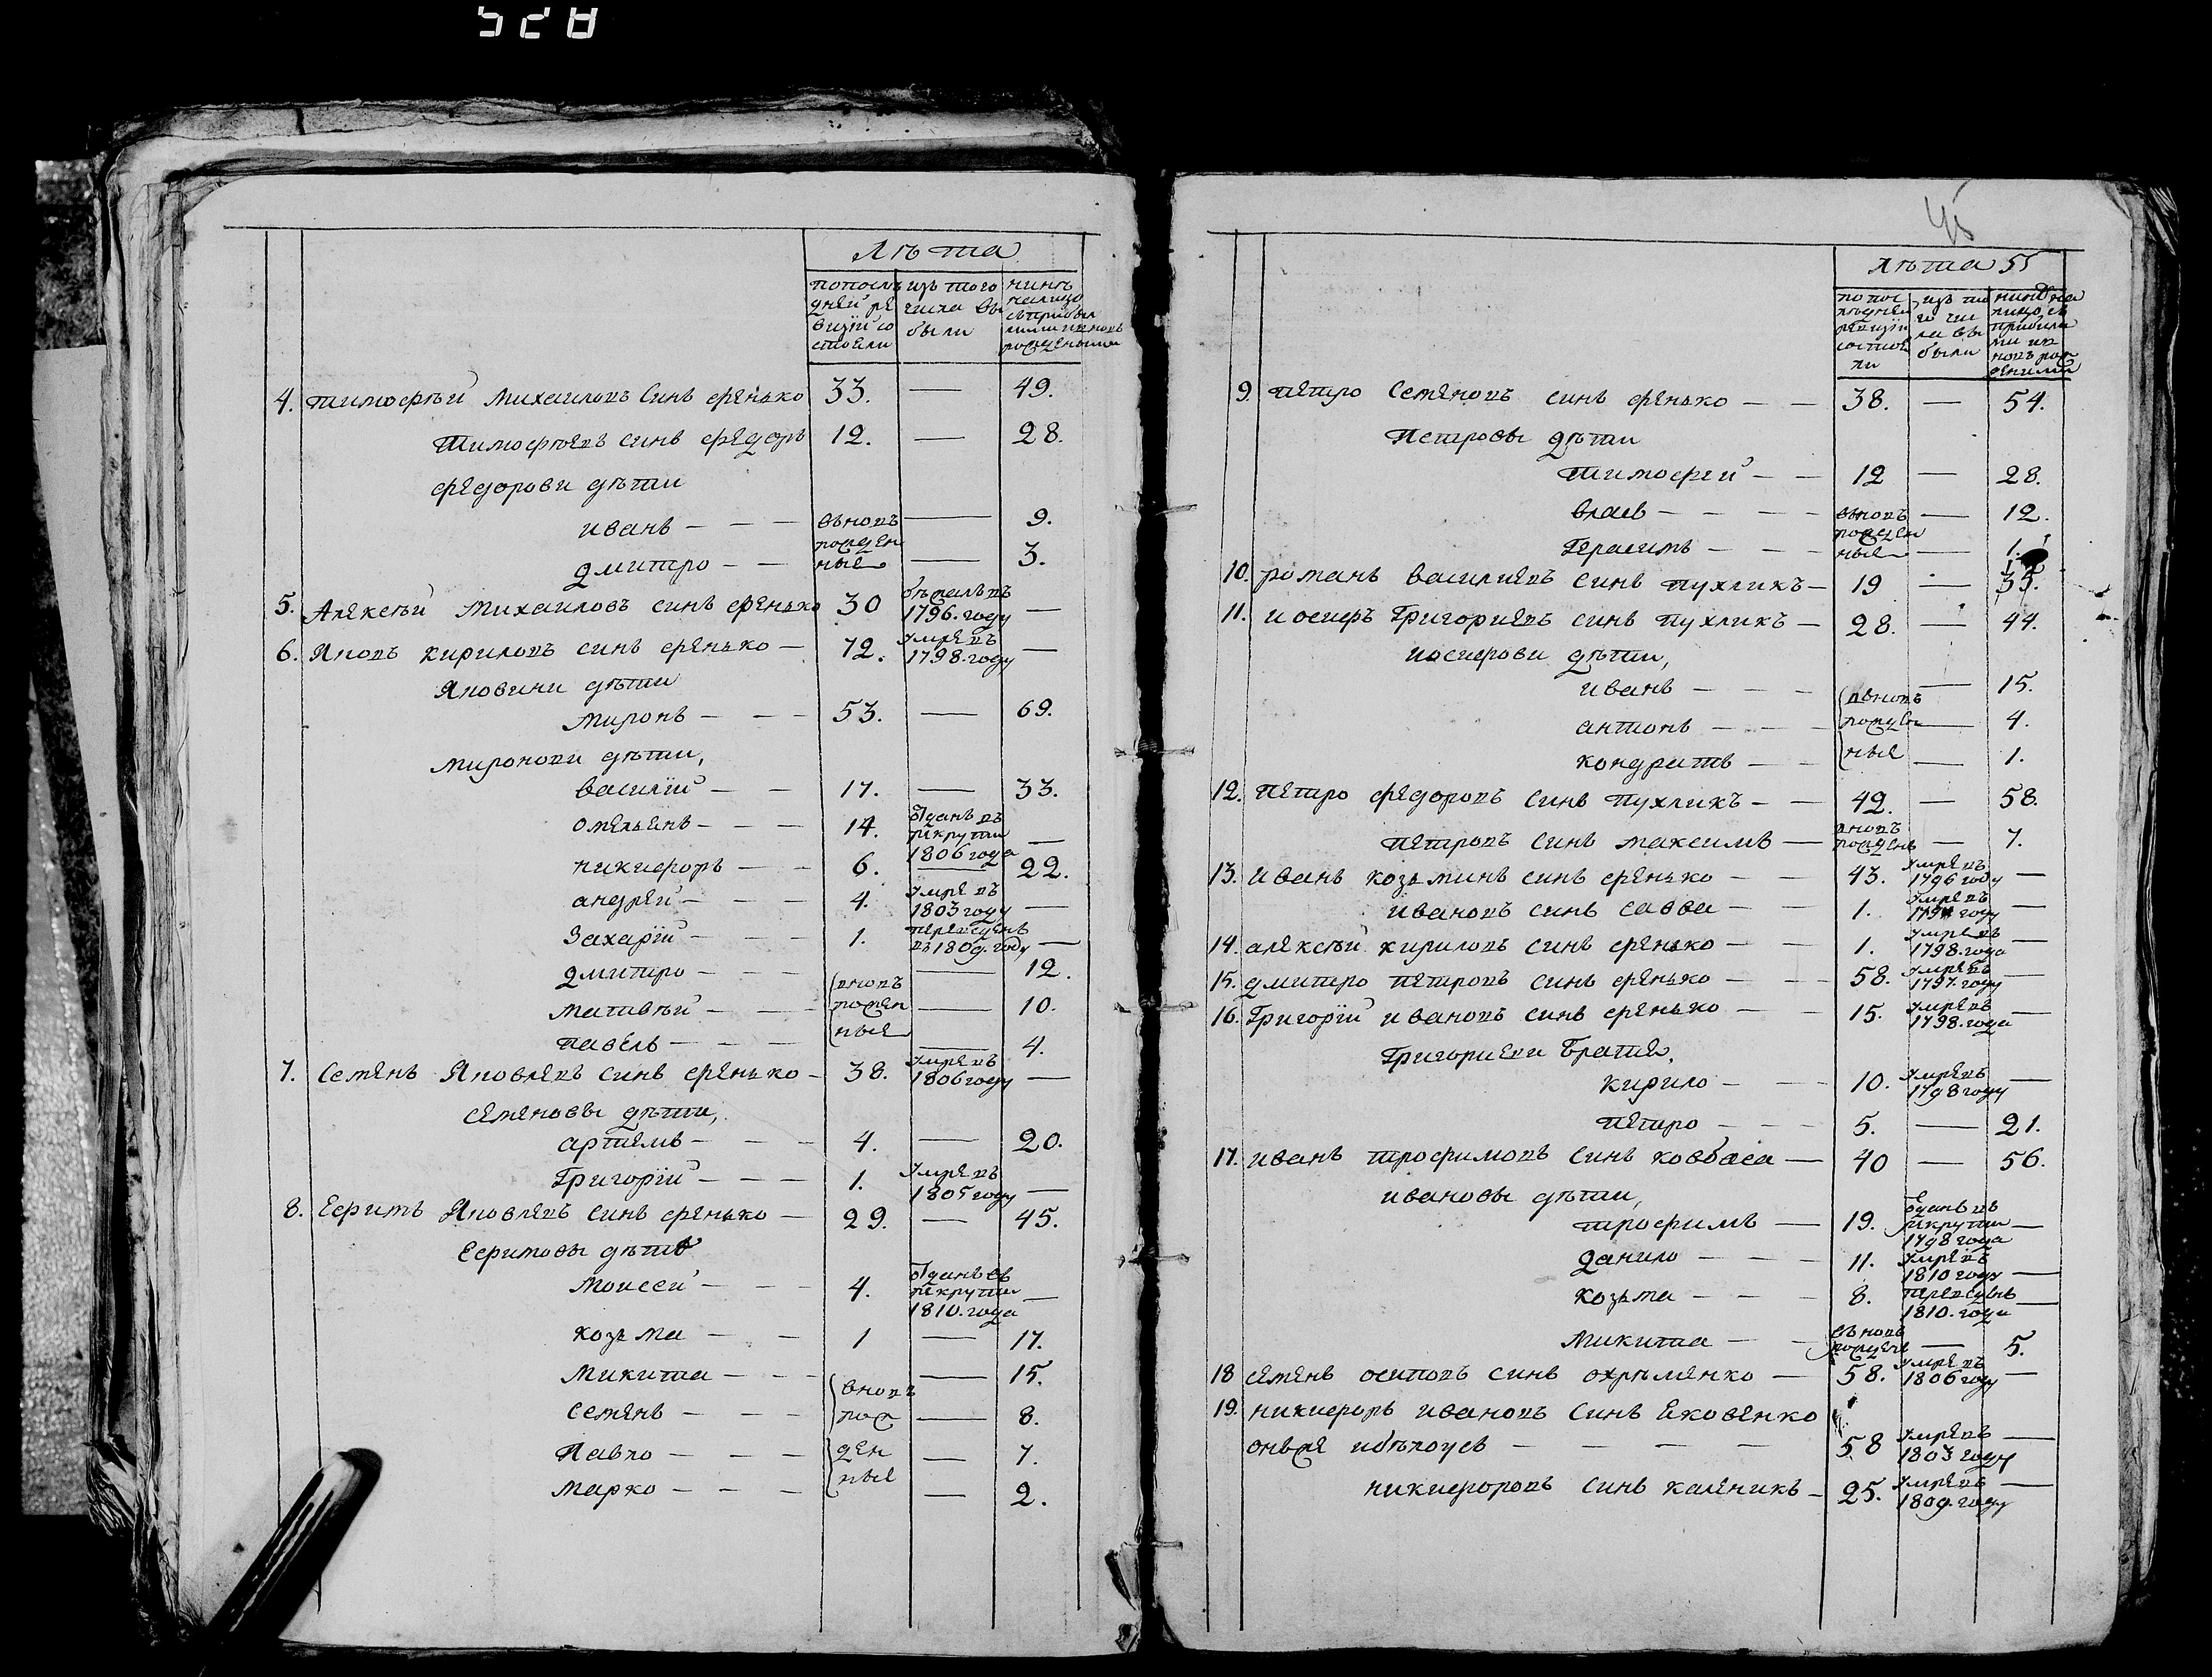 528
Лѣта
попослѣ
дней ре
визіи со
стояли
изъ того
числа вы
были
ныне
налицо
съ прибыл
ми и вновь
рожденными
4. тимофѣй Михаиловъ Синъ Френько 33. — 49.
Тимофѣевъ синъ федоръ 12. — 28.
федорови дѣти
иванъ — — — вьновь — 9.
рожден
дмитро — — ные — 3.
5. Алексѣй Михаиловъ синъ френько 30 бѣжалъ въ 1796. году —
6. Яковъ кириловъ синъ френько — 72. умре въ 1798. году —
Яковини дѣти
Миронъ — — — 53. — 69.
миронови дѣти,
василій — — 17. — 33.
омельянъ — — — 14. отданъ въ рекрути 1806 года —
никифоръ — — 6. — 22.
андрей — — — 4. умре въ 1803 году —
Захарій — — — 1. переведенъ въ 1809. году —
дмитро — — — вновь — 12.
матвѣй — — — рожден — 10.
павелъ — — — ные — 4.
7. Семенъ Яковлевъ синъ френько — 38. умре въ 1806 году —
семеновы дѣти,
артемъ — — — 4. — 20.
Григорій — — — 1. умре въ 1805 году —
8. Ефимъ Яковлевъ синъ френько — 29. — 45.
Ефимовы дѣти
Моисей — — — 4. отданъ въ рекрути 1810. года —
козьма — — 1 — 17.
микита — — — — 15.
вновь
семенъ — — — рож — 8.
Павло — — — ден — 7.
ные
марко — — — — 2.
45
Лѣта 55
по пос
лѣдней
ревизіи
состоя
ли
изъ то
го чи
сла вы
были
ныне на
лицо съ
прибылы
ми и в
новь рож
деними
9. петро Семеновъ синъ френько — — 38. — 54.
Петровы дѣти
тимофей — — 12 — 28.
влась — — — — вьновь — 12.
рожден
Герасимъ — — — ные — 1.
10. романъ василиевъ синъ пухликъ — 19 — 35.
11. иосифъ Григориевъ синъ пухликъ — 28. — 44.
иосифови дѣти,
иванъ — — — вьновь — 15.
антонъ — — — рожден — 4.
кондратъ — — ные — 1.
12. петро федоровъ синъ пухликъ — — 42. — 58.
петровъ синъ максимъ — вновь рожденъ — 7.
13. иванъ козьминъ синъ френько — — 43. умре въ 1796 году —
ивановъ синъ савва — — 1. умре въ 1797 году —
14. алексѣй кириловъ синъ френько — — 1. умре въ 1798. года —
15. дмитро петровъ синъ френько — — 58. умре въ 1797. году —
16. Григорій ивановъ синъ френько — — 15. умре въ 1798. года —
Григориеви братия,
кирило — — — 10. умре въ 1798 году —
петро — — — 5. — 21.
17. иванъ трофимовъ синъ ковбаса — 40 — 56.
ивановы дѣти,
трофимъ — 19. отданъ въ рекрути 1798 года —
данило — — — 11. умре въ 1810 году —
козьма — — — 8. переведенъ 1810. года —
микита — — вьновь рожденъ — 5.
18 семенъ осиповъ синъ охрѣменко — 58. умре въ 1806 году —
19. никифоръ ивановъ синъ Яковенко
онъже и бѣлоусъ — — — — 58 умре въ 1803 году —
никифоровъ синъ каленикъ — 25. умре въ 1809. году —